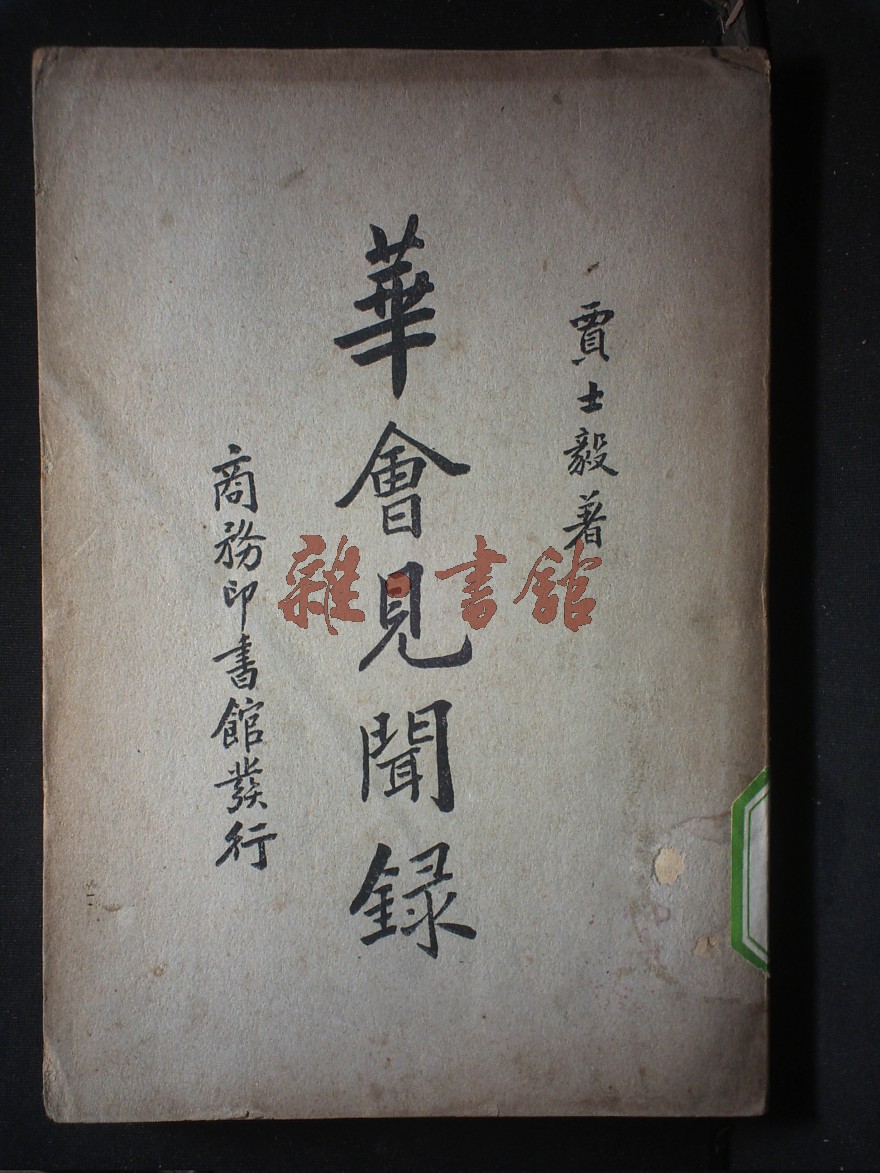 賈士毅著
華會見聞録
商務印書館發行
雜·書館